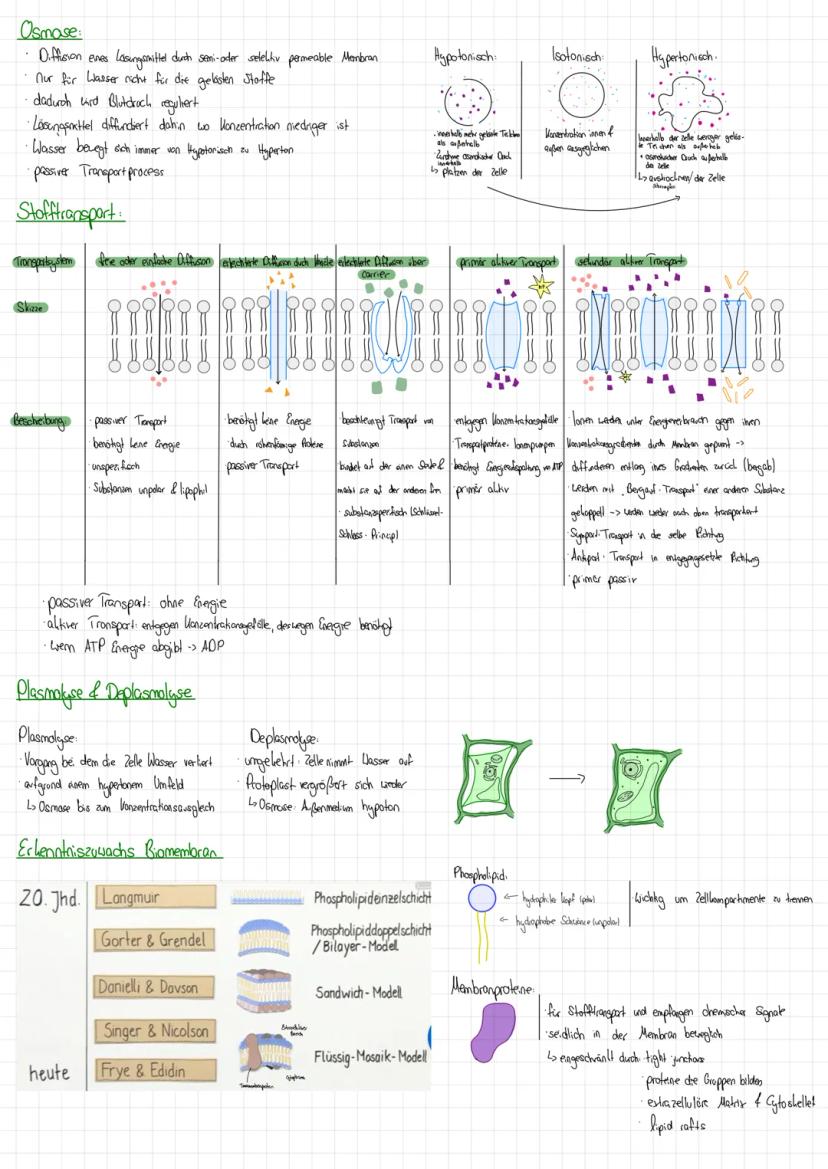 Osmose:
· Diffusion eines Lösungsmittel durch semi-oder selektiv permeable Membran
· Nur für Wasser nicht für die gelösten Stoffe
· dadurch wird Blutdruck reguliert
· Lösungsmittel diffundiert dahin wo Konzentration niedriger ist
· Wasser bewegt sich immer von Hypotonisch zu Hyperton
· passiver Transportprocess
Hypotonisch:
· innerhalb mehr gelöste Teilchen
als außerhalb
Zunahme osmotischer Druck
innerhalb
↳ platzen der Zelle
Isotonisch:
Konzentration innen &
außen ausgeglichen
Hypertonisch:
Innerhalb der Zelle weniger gelös-
te Teilchen als außerhalb
· osmotischer Druck außerhalb
der Zelle
↳ austrocknen/der Zelle
Stofftransport:
Transportsystem
freie oder einfache Diffusion
erleichterte Diffusion durch Kanäle
erleichterte Diffusion über
carrier
primär aktiver Transport
sekundär aktiver Transport
Skizze
Beschreibung
· passiver Transport
· benötigt keine Energie
· unspezifisch
· Substanzen unpolar & lipophil
· benötigt keine Energie
· durch röhrenförmige Proteine
passiver Transport
· beschleunigt Transport von
Substanzen
bindet auf der einen Seite &
macht sie auf der anderen frei
· substanzspezifisch (Schlüssel-
Schloss-Prinzip)
· entgegen Konzentrationsgefälle
· Transportproteine, Ionenpumpen
benötigt Energieabspaltung von ATP
· primär aktiv
· Ionen werden unter Energieverbrauch gegen ihren
Konzentrationsgradienten durch Membran gepumt ->
diffundieren entlang ihres Gradienten zurück (bergab)
· werden mit „Bergauf-Transport" einer anderen Substanz
gekoppelt -> werden wieder nach oben transportiert
· Symport: Transport in die selbe Richtung
· Antiport: Transport in entgegengesetzte Richtung
· primär passiv
· passiver Transport: ohne Energie
· aktiver Transport: entgegen Konzentrationsgefälle, deswegen Energie benötigt
· wenn ATP Energie abgibt -> ADP
Plasmolyse & Deplasmolyse
Plasmolyse:
· Vorgang bei dem die Zelle Wasser verliert
· aufgrund einem hypertonem Umfeld
↳ Osmose bis zum Konzentrationsausgleich
Deplasmolyse:
· umgekehrt: Zelle nimmt Wasser auf
· Protoplast vergrößert sich wieder
↳ Osmose: Außenmedium hypoton
Erkenntniszuwachs Biomembran
20. Jhd.
Langmuir
Phospholipideinzelschicht
Gorter & Grendel
Phospholipiddoppelschicht
/ Bilayer-Modell
Danielli & Davson
Sandwich-Modell
Singer & Nicolson
Flüssig-Mosaik-Modell
heute
Frye & Edidin
Phospholipid:
<- hydrophiler Kopf (polar)
<- hydrophobe Schwänze (unpolar)
· wichtig um Zellkompartimente zu trennen
Membranproteine:
· für Stofftransport und empfangen chemischer Signale
· seidlich in der Membran beweglich
↳ eingeschränkt durch: tight junctions
· proteine die Gruppen bilden
· extrazelluläre Matrix & Cytoskellet
· lipid rafts